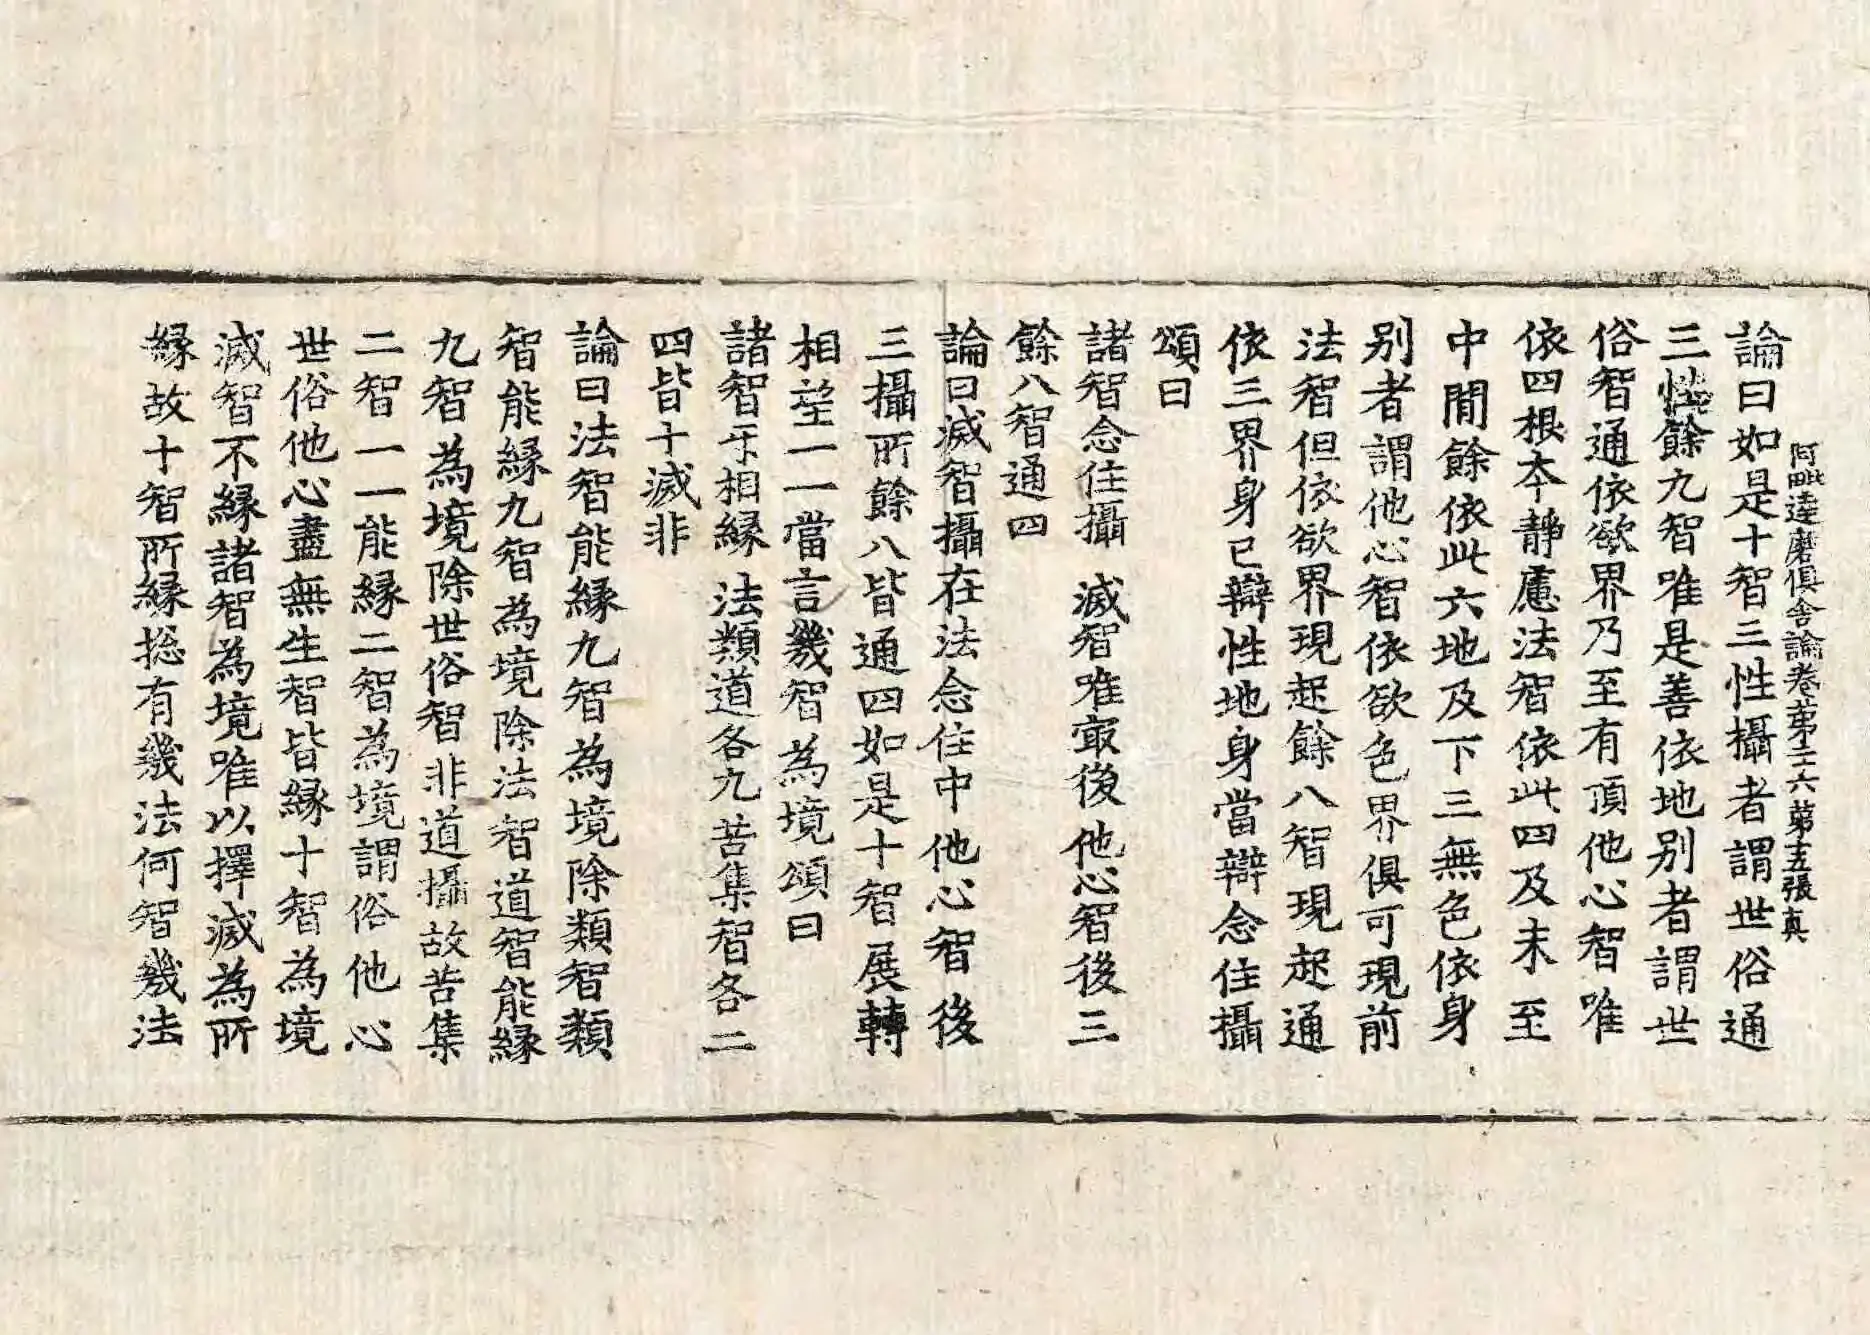 阿毗達磨俱舍論卷苐二十六 苐十五張 真
論曰如是十智三性攝者謂世俗通
三性餘九智唯是善依地别者謂世
俗智通依欲界乃至有頂他心智唯
依四根本靜慮法智依此四及未至
中閒餘依此六地及下三無色依身
别者謂他心智依欲色界俱可現前
法智但依欲界現起餘八智現起通
依三界身已辯性地身當辯念住攝
頌曰
諸智念住攝 滅智唯㝡後 他心智後三
餘八智通四
論曰滅智攝在法念住中他心智後
三攝所餘八皆通四如是十智展轉
相望一一當言幾智為境頌曰
諸智㸦相緣 法類道各九 苦集智各二
四皆十滅非
論曰法智能緣九智為境除類智類
智能緣九智為境除法智道智能緣
九智為境除世俗智非道攝故苦集
二智一一能緣二智為境謂俗他心
世俗他心盡無生智皆緣十智為境
滅智不緣諸智為境唯以擇滅為所
緣故十智所緣捴有幾法何智幾法